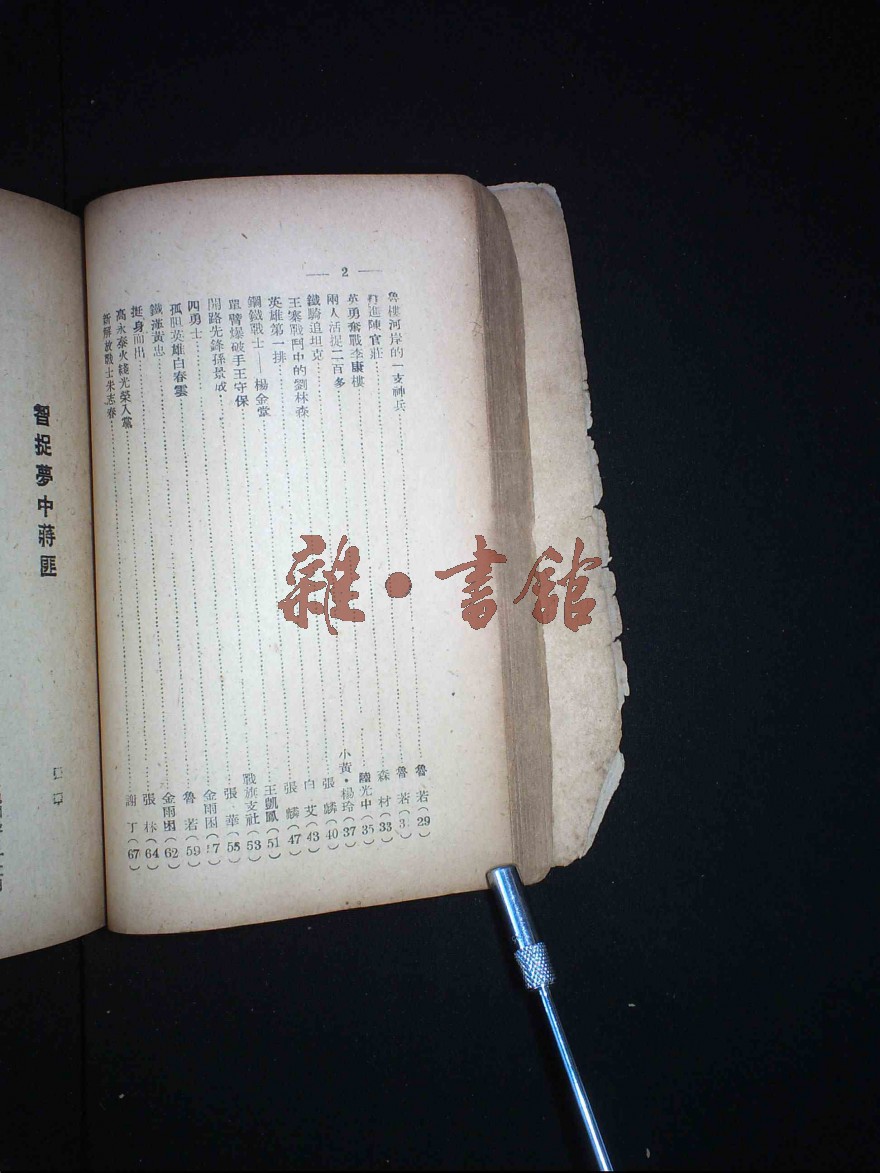 — 2 —
魯樓河岸的一支神兵……魯 若(29)
打進陳官莊……魯 若(3
英勇奮戰李康樓……森 材(33)
兩人活捉二百多……陸光中(35)
鐵騎追坦克……小黃・楊玲(37)
王寨戰鬥中的劉林森……張 麟(40)
英雄第一排……白 艾(43)
鋼鐵戰士——楊金堂……張 麟(47)
單臂爆破手王守保……王凱鳳(51)
開路先鋒孫景成……戰旗支社(53)
四勇士……張 華(55)
孤胆英雄白春雲……金雨困(57)
鐵漢黃忠……魯 若(59)
挺身而出……金雨困(62)
高永泰火綫光榮入黨……張 林(64)
新解放戰士朱志春……謝 丁(67)
智捉夢中蔣匪
雜・書館